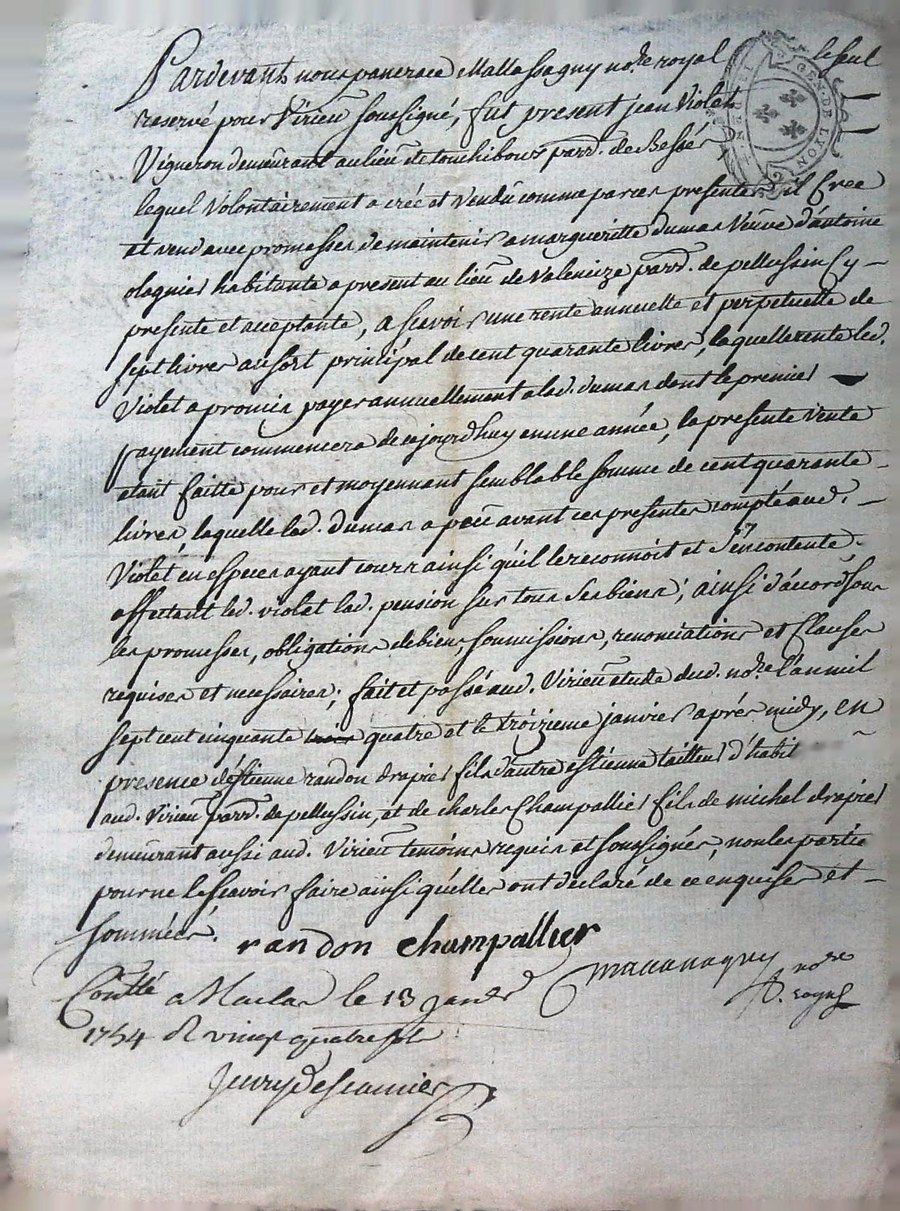 Pardevant nous pancrace Mallassagny no.re royal le seul
GEN. DE LYON
reservé pour Virieu soussigné, fut present jean Violet
Vigneron demeurant au lieu de parr. de Bessé
lequel Volontairement a créé et Vendu comme par ces presentes il Cree
et vend avec promesses de maintenir a margueritte dumas Veuve d'antoine
olagnier habitante a present au lieu de Valencize parr. de pellussin Cy –
presente et acceptante, a scavoir une rente annuelle et perpetuelle de
sept livres au sort principal de cent quarante livres, laquelle rente led.
Violet a promis payer annuellement a lad. dumas dont le premier –
payement commencera de cejourd'huy en une année, la presente Vente
etant faitte pour et moyennant semblable somme de cent quarante –
livres, laquelle lad. dumas a avant ces presentes compté aud. –
Violet en especes ayant cours ainsi qu'il le reconnoit et s'en contente.
affectant led. violet lad. pension sur tous ses biens; ainsi d'accord sous
les promesses, obligations de biens, soumissions, renonciations et Clauses
requises et necessaires; fait et passé aud. Virieu etude dud. no.re l'an mil
sept cent cinquante quatre et le troizieme janvier après midy, en
presence d'éstienne randon drapier fils d'autre estienne tailleur d'habit ~
aud. Virieu parr. de pellussin, et de charles Champallier fils de michel drapier
demeurant aussi aud. Virieu temoins requis et soussignés, non les partie
pour ne le scavoir faire ainsi qu'elles ont déclaré de ce enquises et –
sommées.
randon champallier
no.re
royal
Conllé a Maclas le 13 janer
1754 R vingt quatre sols